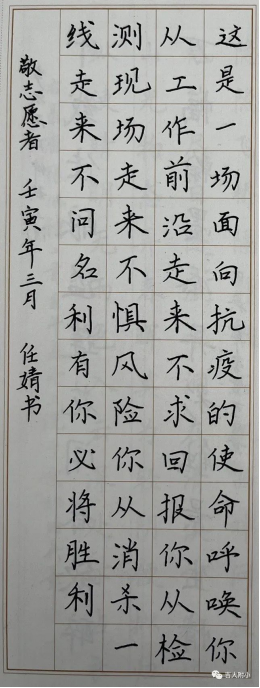 这是一场面向抗疫的使命呼唤你
从工作前沿走来不求回报你从检
测现场走来不惧风险你从消杀一
线走来不问名利有你必将胜利
敬志愿者 壬寅年三月 任婧书
吉人町小